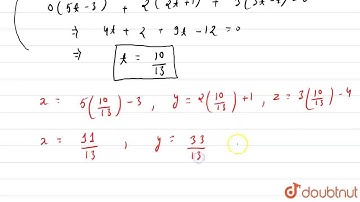 0(5t-3) + 2(2t+1) + 3(3t-4) = 0
⇒ 4t + 2 + 9t - 12 = 0
t = 10/13
x = 5(10/13) - 3 , y = 2(10/13) + 1 , z = 3(10/13) - 4
x = 11/13 , y = 33/13
doubtnut